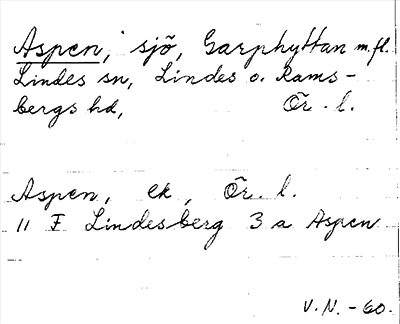 Aspen, sjö, Garphyttan m.fl.
Lindes sn, Lindes o. Rams-
bergs hd, Ör. l.
Aspen, ek, Ör. l.
11 F Lindesberg 3 a Aspen
V.N. -60.